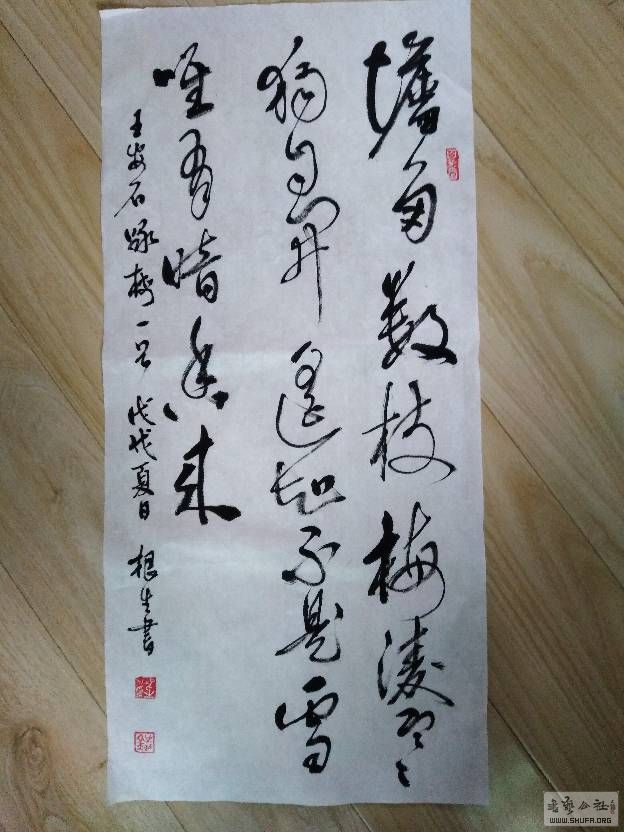 墙角数枝梅凌寒
独自开遥知不是雪
唯有暗香来
王安石咏梅一首 戊戌夏日 根生書
書藝公社
WWW.SHUFA.ORG